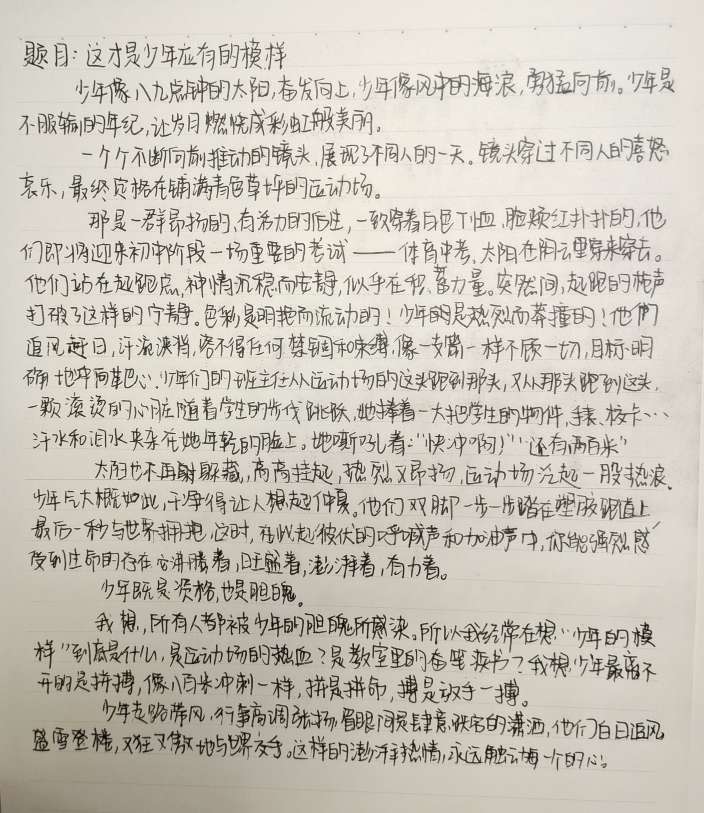 题目：这才是少年应有的模样
少年像八九点钟的太阳，奋发向上，少年像风中的海浪，勇猛向前。少年是
不服输的年纪，让岁月燃烧成彩虹般美丽。
一个个不断向前推动的镜头，展现了不同人的一天。镜头穿过不同人的喜怒
哀乐，最终定格在铺满青色草坪的运动场。
那是一群昂扬的、有活力的后生，一致穿着白色T恤，脸颊红扑扑的，他
们即将迎来初中阶段一场重要的考试——体育中考。太阳在阴云里穿来穿去。
他们站在起跑点，神情沉稳而安静，似乎在积蓄力量。突然间，起跑的枪声
打破了这样的宁静。色彩是明艳而流动的！少年的是热烈而莽撞的！他们
追风赶日，汗流浃背，容不得任何禁锢和束缚，像一支箭一样不顾一切，目标明
确地冲向靶心。少年们的班主任从运动场的这头跑到那头，又从那头跑到这头，
一颗滚烫的心脏随着学生的步伐跳跃，她捧着一大把学生的物件，手表、校卡…
汗水和泪水夹杂在她年轻的脸上。她嘶吼着：“快冲啊！”“还有两百米”
太阳也不再躲藏，高高挂起，热烈又昂扬，运动场泛起一股热浪。
少年气大概如此，干净得让人想起仲夏。他们双脚一步一步踏在塑胶跑道上
最后一秒与世界拥抱，这时，在此起彼伏的呼喊声和加油声中，你能强烈感
受到生命的存在，它沸腾着，旺盛着，澎湃着，有力着。
少年既是资格，也是胆魄。
我想，所有人都被少年的胆魄所感染。所以我经常在想“少年的模
样”到底是什么，是运动场的热血？是教室里的奋笔疾书？我想少年最离不
开的是拼搏，像八百米冲刺一样，拼是拼命，搏是放手一搏。
少年走路带风，行事高调张扬，眉眼间是肆意的潇洒，他们白日追风
盛雪登楼，又狂又傲地与世界交手。这样的澎湃热情，永远触动每一个的心。